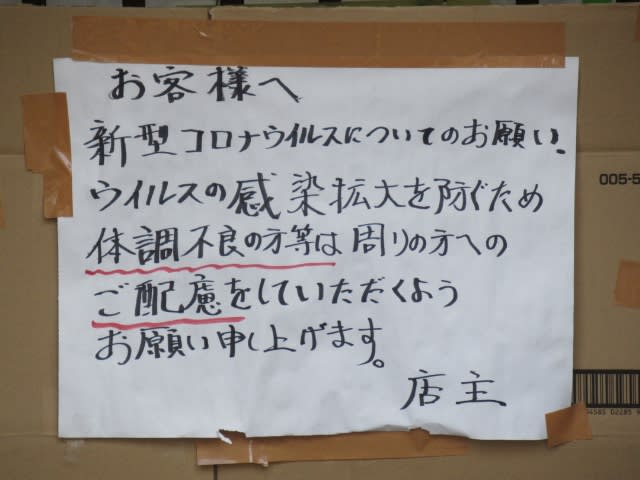 お客様へ
新型コロナウイルスについてのお願い.
ウイルスの感染拡大を防ぐため
体調不良の方等は周りの方への
ご配慮をしていただくよう
お願い申し上げます。
店主
005-5